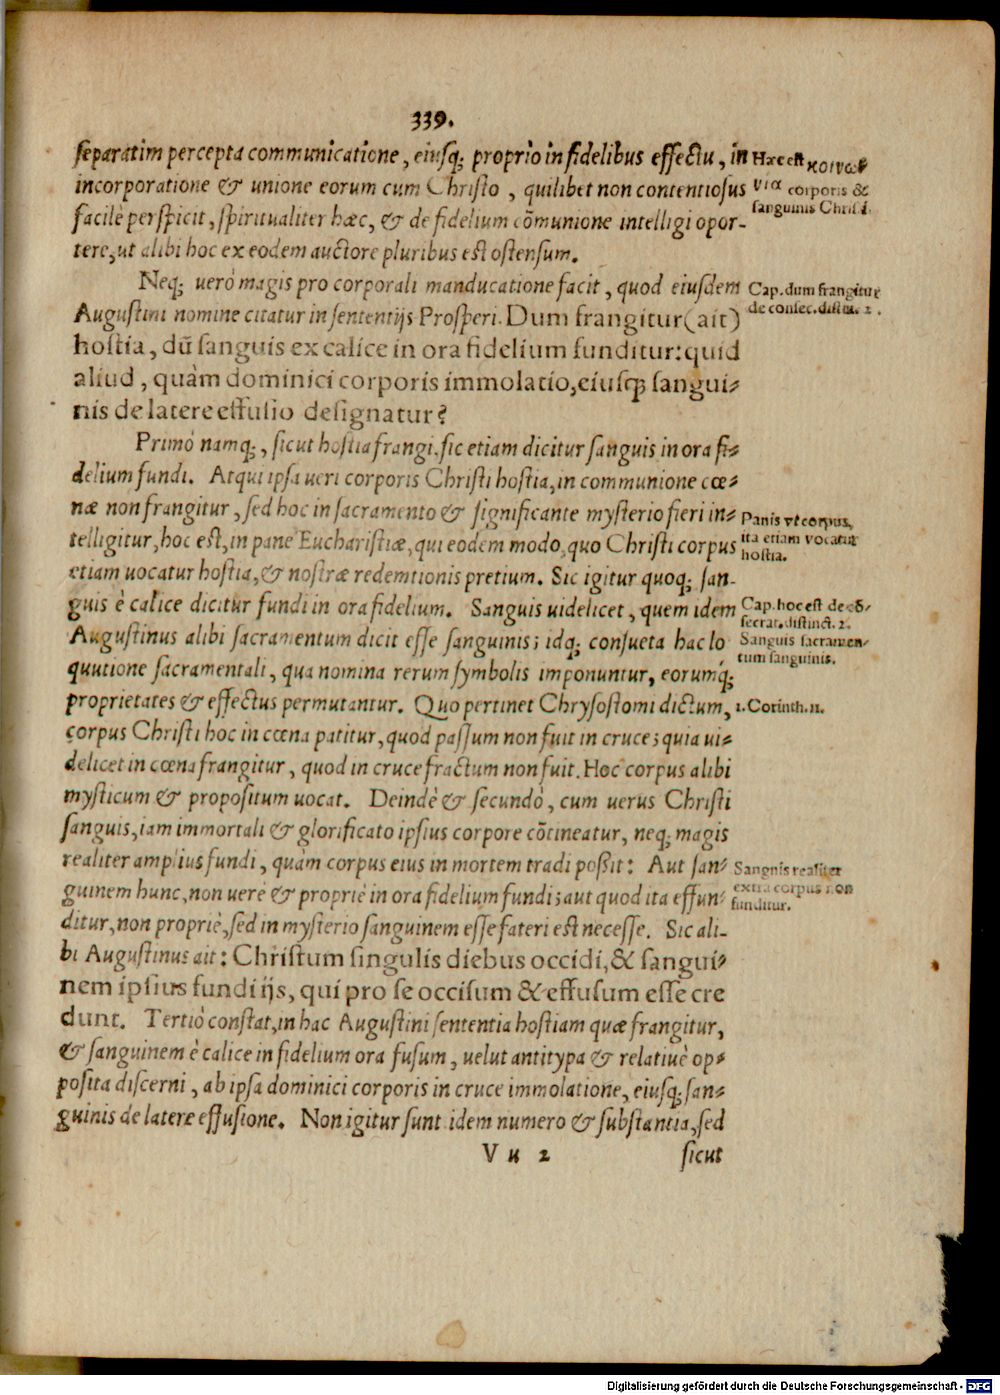 339.
separatim percepta communicatione, eiusq; proprio in fidelibus effectu, in
incorporatione & unione eorum cum Christo, quilibet non contentiosus
facilè perspicit, spiritualiter hæc, & de fidelium cōmunione intelligi opor-
tere, ut alibi hoc ex eodem auctore pluribus est ostensum.
Hæc est κοινω-
νια corporis &
sanguinis Christi.
Neq; uerò magis pro corporali manducatione facit, quod eiusdem
Augustini nomine citatur in sententijs Prosperi. Dum frangitur (ait)
hostia, dū sanguis ex calice in ora fidelium funditur: quid
aliud, quàm dominici corporis immolatio, eiusq; sangui-
nis de latere effusio designatur?
Cap. dum frangitur
de consec. distin. 2.
Primò namq;, sicut hostia frangi, sic etiam dicitur sanguis in ora fi-
delium fundi. Atqui ipsa ueri corporis Christi hostia, in communione cœ-
næ non frangitur, sed hoc in sacramento & significante mysterio fieri in-
telligitur, hoc est, in pane Eucharistiæ, qui eodem modo, quo Christi corpus
etiam uocatur hostia, & nostræ redemtionis pretium. Sic igitur quoq; san-
guis è calice dicitur fundi in ora fidelium. Sanguis uidelicet, quem idem
Augustinus alibi sacramentum dicit esse sanguinis; idq; consueta hac lo
quutione sacramentali, qua nomina rerum symbolis imponuntur, eorumq́;
proprietates & effectus permutantur. Quo pertinet Chrysostomi dictum,
corpus Christi hoc in cœna patitur, quod passum non fuit in cruce; quia ui-
delicet in cœna frangitur, quod in cruce fractum non fuit. Hoc corpus alibi
mysticum & propositum uocat. Deindè & secundò, cum uerus Christi
sanguis, iam immortali & glorificato ipsius corpore cōtineatur, neq; magis
realiter amplius fundi, quàm corpus eius in mortem tradi possit: Aut san-
guinem hunc, non uerè & propriè in ora fidelium fundi; aut quod ita effun-
ditur, non propriè, sed in mysterio sanguinem esse fateri est necesse. Sic ali-
bi Augustinus ait: Christum singulis diebus occidi, & sangui-
nem ipsius fundi ijs, qui pro se occisum & effusum esse cre
dunt. Tertiò constat, in hac Augustini sententia hostiam quæ frangitur,
& sanguinem è calice in fidelium ora fusum, uelut antitypa & relatiuè op-
posita discerni, ab ipsa dominici corporis in cruce immolatione, eiusq; san-
guinis de latere effusione. Non igitur sunt idem numero & substantia, sed
Panis vt corpus,
ita etiam vocatur
hostia.
Cap. hoc est de cō-
secrat. distinct. 2.
Sanguis sacramen-
tum sanguinis.
1. Corinth. 11.
Sanguis realiter
extra corpus non
funditur.
V u 2
sicut
Digitalisierung gefördert durch die Deutsche Forschungsgemeinschaft - DFG